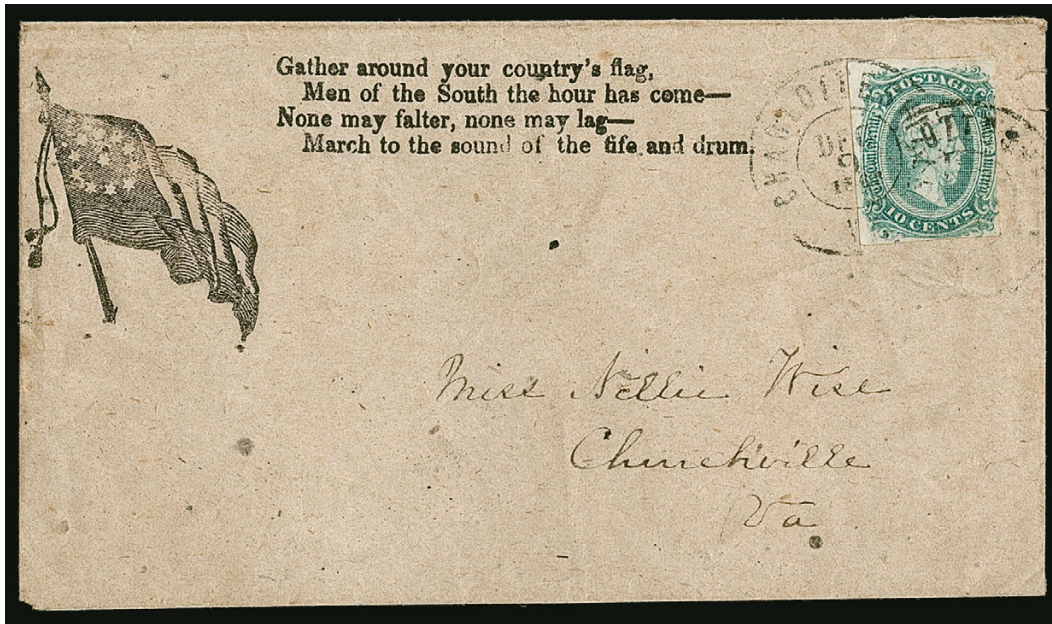 Gather around your country's flag,
Men of the South the hour has come—
None may falter, none may lag—
March to the sound of the fife and drum.
POSTAGE
10 CENTS
Miss Nellie Wise
Churchville
Va